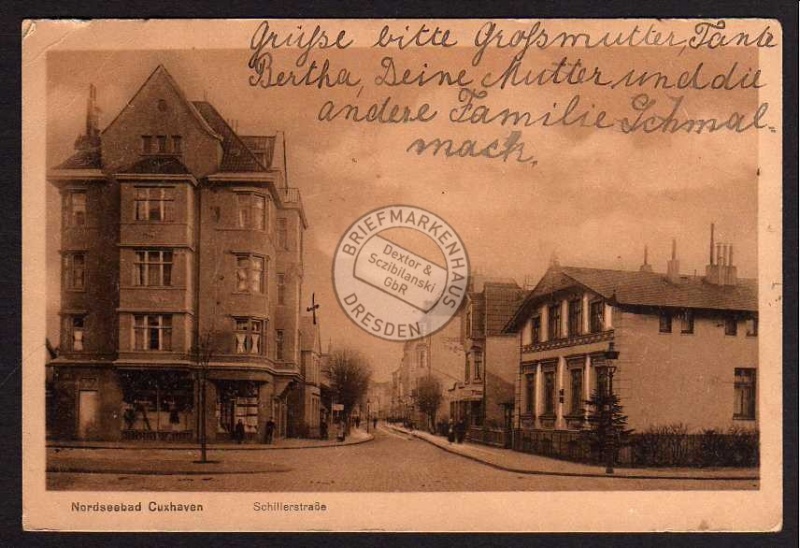 Grüße bitte Großmutter, Tante
Bertha, Deine Mutter und die
andere Familie Schmal-
mack.
BRIEFMARKENHAUS
Dextor &
Sczibilanski
GbR
DRESDEN
Nordseebad Cuxhaven Schillerstraße